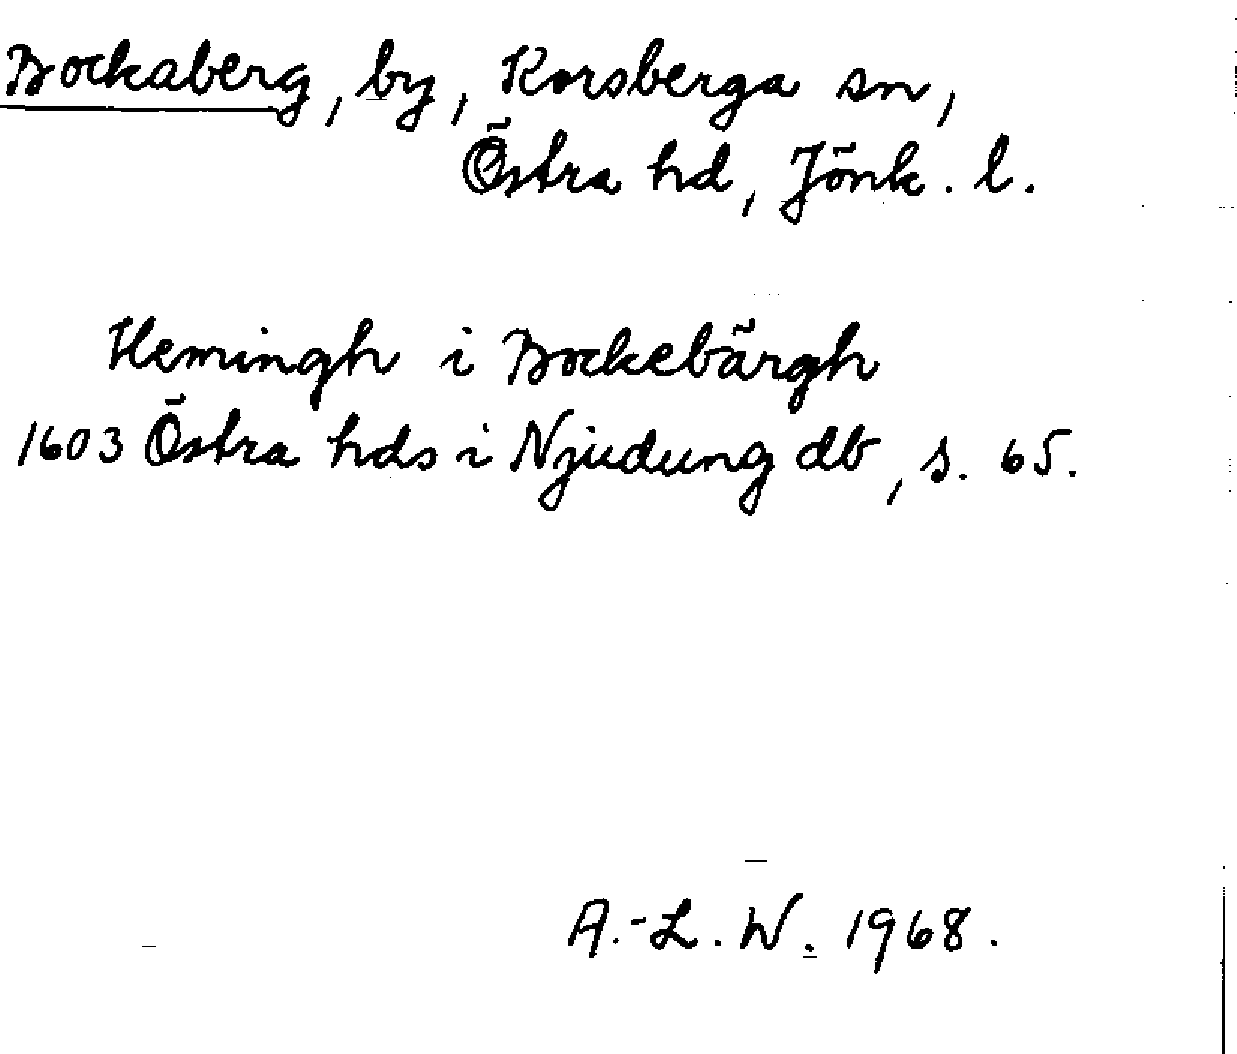 Bockaberg, by, Korsberga sn,
Östra hd, Jönk. l.
Hemingh i Bockebärgh
1603 Östra hds i Njudung db, s. 65.
A.-L. W. 1968.